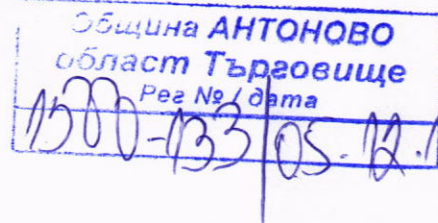 Община АНТОНОВО
област Търговище
Рег № / дата
05.12.1